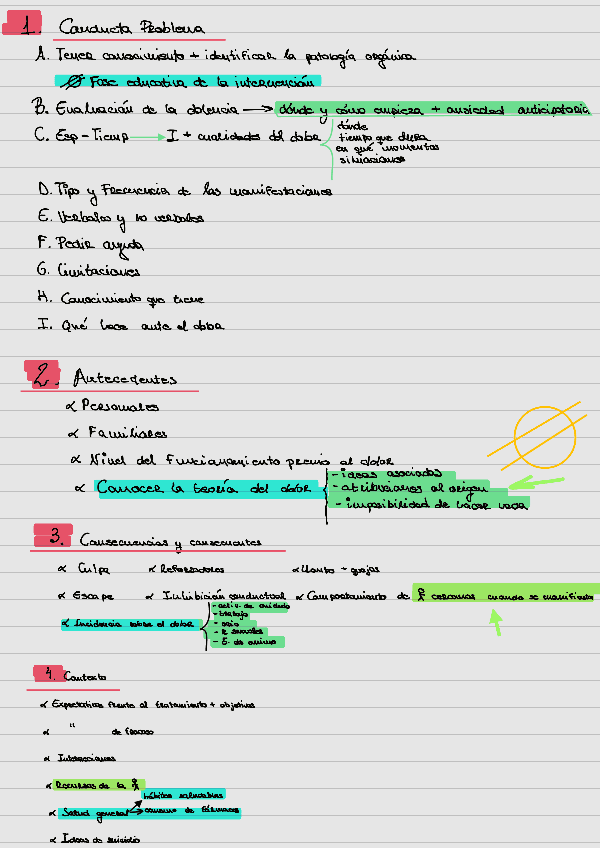 1. Conducta Problema
A. Tener conocimiento + identificar la patología orgánica
Fase educativa de la intervención
B. Evaluación de la dolencia → dónde y cómo empieza + ansiedad anticipatoria
C. Esp-Tiemp → I + cualidades del dolor
dónde
tiempo que dura
en qué momentos
situaciones
D. Tipo y Frecuencia de las manifestaciones
E. Verbales y no verbales
F. Pedir ayuda
G. Limitaciones
H. Conocimiento que tiene
I. Qué hace ante el dolor
2. Antecedentes
α Personales
α Familiares
α Nivel del Funcionamiento previo al dolor
α Conocer la teoría del dolor
- ideas asociadas
- atribuciones al origen
- imposibilidad de hacer nada
3. Consecuencias y consecuentes
α Culpa α Reforzadores α Llanto + quejas
α Escape α Inhibición conductual α Comportamiento de cercanos cuando se manifiesta
α Incidencia sobre el dolor
- activ. de cuidado
- trabajo
- ocio
- R. sexuales
- E. de ánimo
4. Contexto
α Expectativas frente al tratamiento + objetivos
α " de fracaso
α Interacciones
α Recursos de la
α Salud general → hábitos saludables
→ consumo de fármacos
α Ideas de suicidio